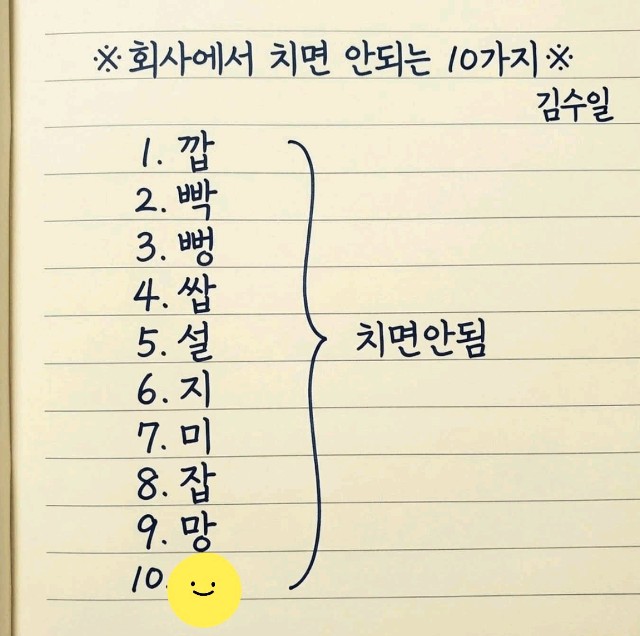 ※회사에서 치면 안되는 10가지※
김수일
1. 깝
2. 빡
3. 뻥
4. 쌉
5. 설
6. 지
7. 미
8. 잡
9. 망
10.
치면안됨